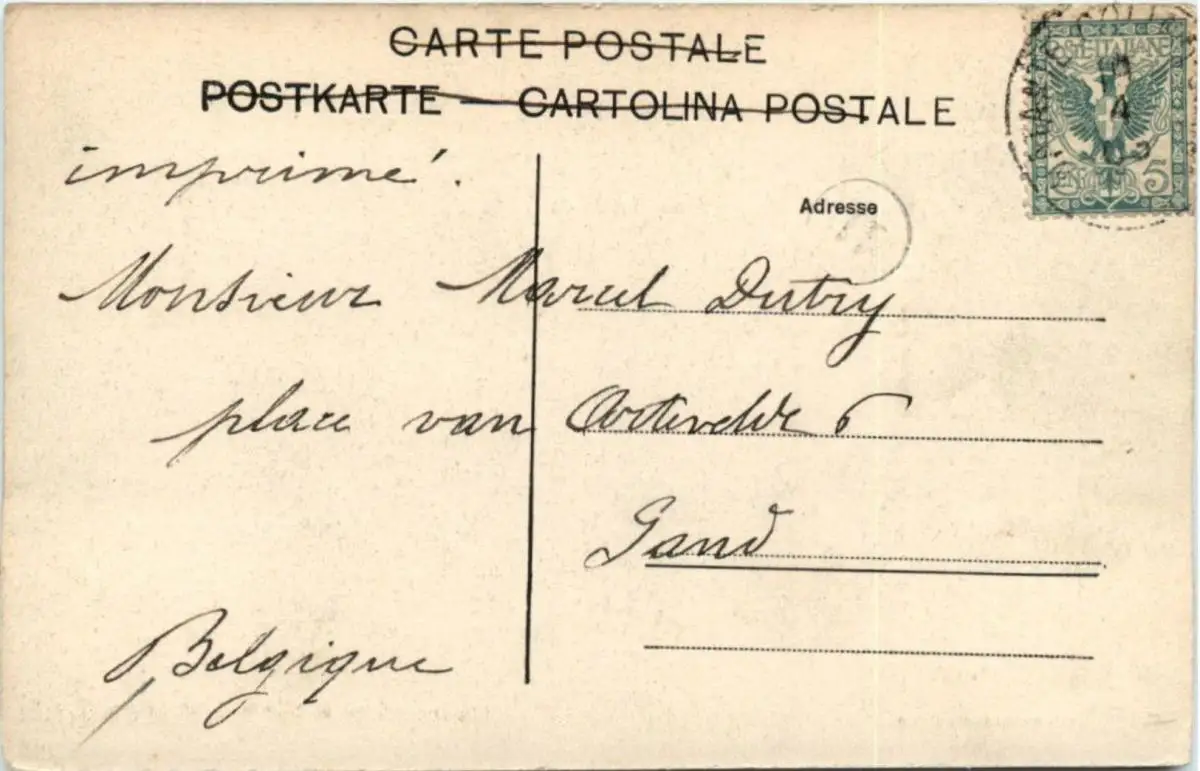 CARTE POSTALE
POSTKARTE — CARTOLINA POSTALE
imprimé.
Adresse
POSTE ITALIANE
5
Monsieur Marcel Dutry
place van Artevelde 6
Gand
Belgique